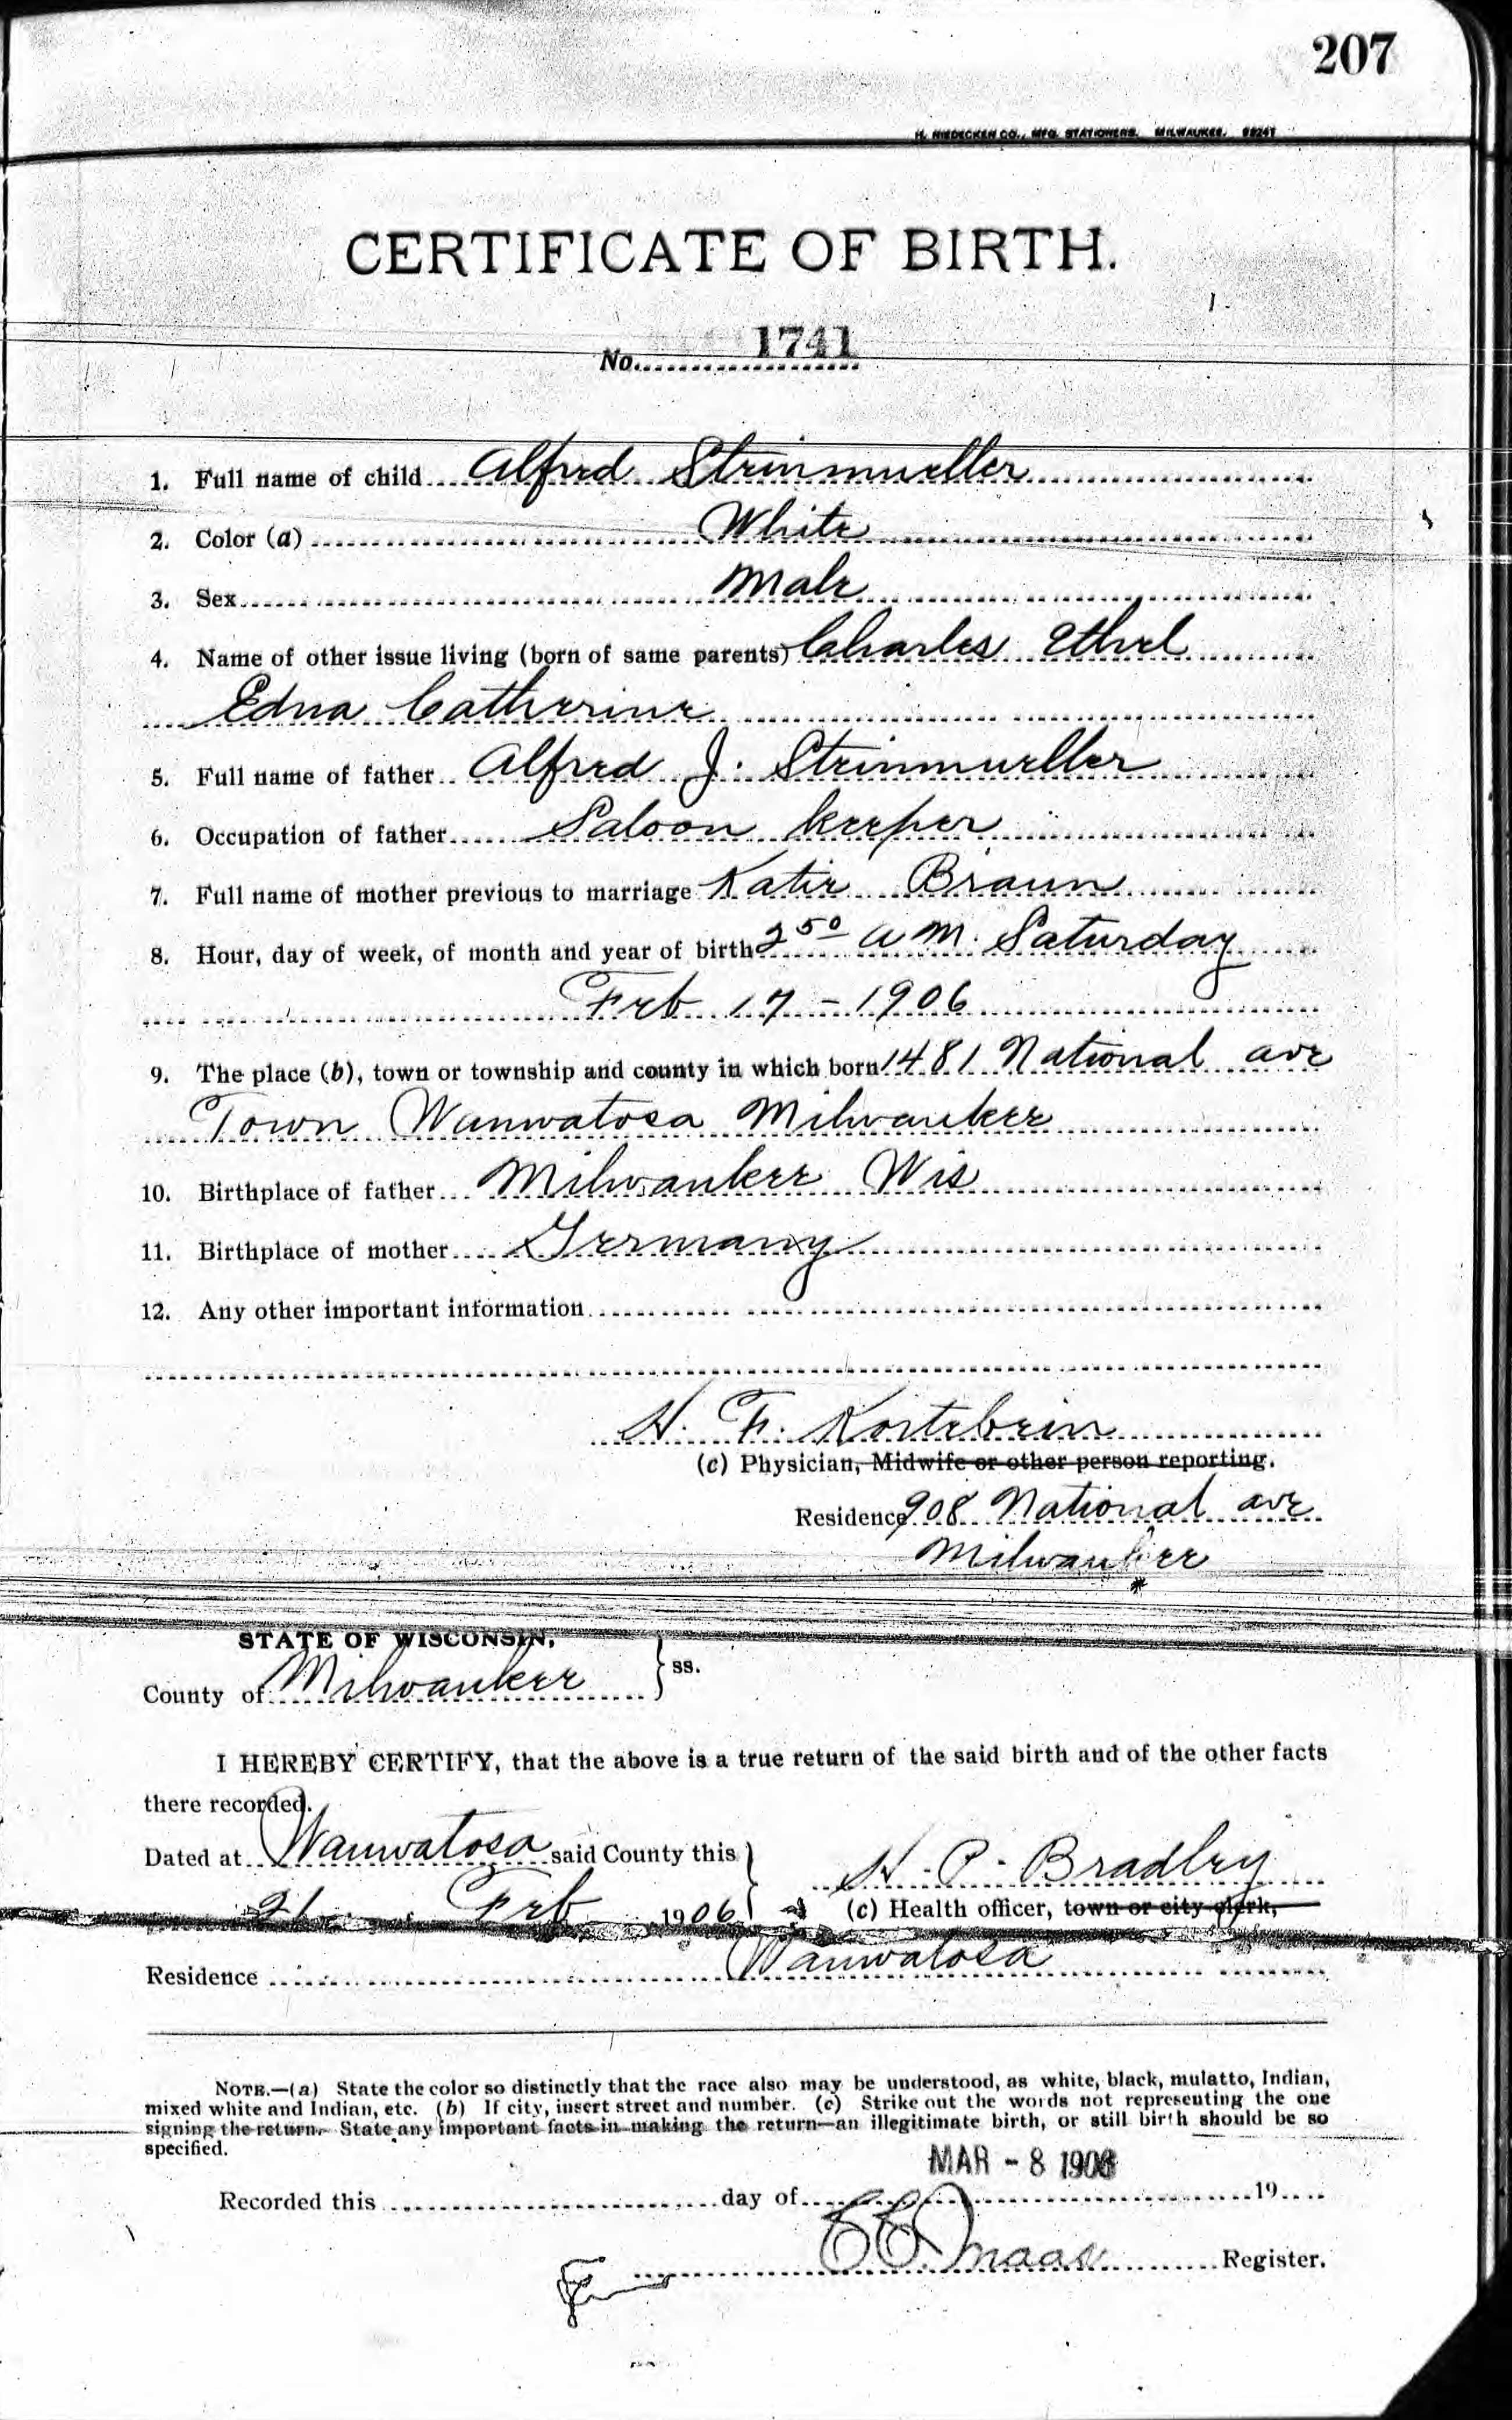 207
H. NIEDECKEN CO., MFG. STATIONERS. MILWAUKEE.
CERTIFICATE OF BIRTH.
No. 1741
1. Full name of child Alfred Steinmueller
2. Color (a) White
3. Sex Male
4. Name of other issue living (born of same parents) Charles Ethel
Edna Catherine
5. Full name of father Alfred J. Steinmueller
6. Occupation of father Saloon keeper
7. Full name of mother previous to marriage Katie Braun
8. Hour, day of week, of month and year of birth 2 50 a M. Saturday
Feb 17 - 1906
9. The place (b), town or township and county in which born 1481 National ave
Town Wauwatosa Milwaukee
10. Birthplace of father Milwaukee Wis
11. Birthplace of mother Germany
12. Any other important information
H. F. Kortebein
(c) Physician, Midwife or other person reporting.
Residence 908 National ave
Milwaukee
STATE OF WISCONSIN,
County of Milwaukee } ss.
I HEREBY CERTIFY, that the above is a true return of the said birth and of the other facts
there recorded.
Dated at Wauwatosa said County this } H. P. Bradley
21 Feb 1906 (c) Health officer, town or city clerk,
Residence Wauwatosa
NOTE.—(a) State the color so distinctly that the race also may be understood, as white, black, mulatto, Indian,
mixed white and Indian, etc. (b) If city, insert street and number. (c) Strike out the words not representing the one
signing the return. State any important facts in making the return—an illegitimate birth, or still birth should be so
specified.
MAR - 8 1906
Recorded this day of 19
Maas Register.